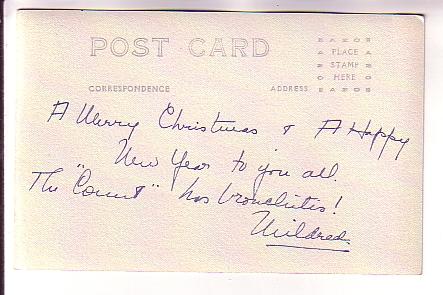 POST CARD
CORRESPONDENCE
ADDRESS
PLACE
STAMP
HERE
A Merry Christmas & A Happy
New Year to you all.
The "Count" has bronchitis!
Mildred.